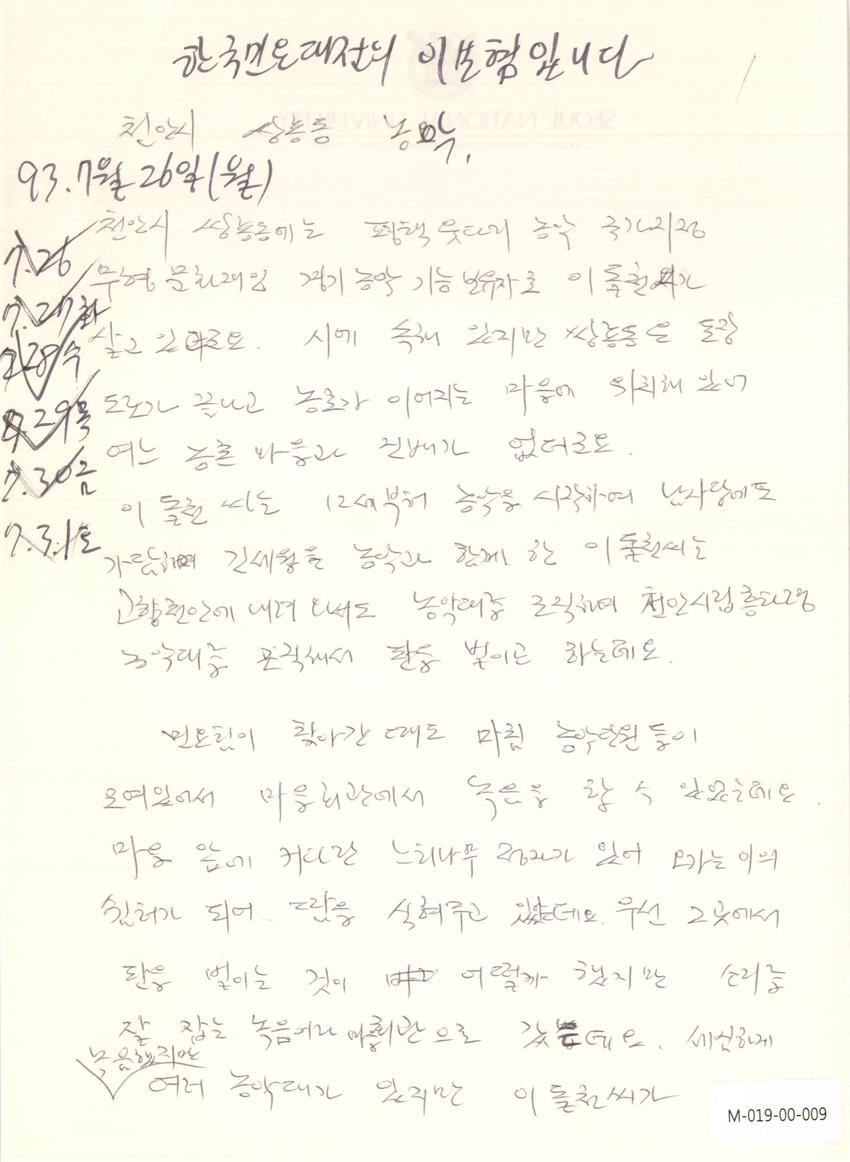 한국민요대전의 이보형입니다
천안시 쌍용동 농악.
93.7월 26일(월)
7.26
7.27화
7.28수
7.29목
7.30금
7.31토
천안시 쌍용동에는 평택 웃다리 농악 국가지정
무형문화재인 경기 농악 기능보유자로 이돌천씨가
살고 있더군요. 시에 속해 있지만 쌍용동은 포장
도로가 끝나고 농로가 이어지는 마을에 위치해 있어
여느 농촌 마을과 진배가 없더군요.
이돌천 씨는 12세부터 농악을 시작하여 남사당에도
가담하며 긴세월을 농악과 함께 한 이돌천씨는
고향천안에 내려 와서도 농악대를 조직하여 천안시립흥타령
농악대를 조직해서 판을 벌이곤 하는데요.
민요팀이 찾아간 때도 마침 농악단원들이
모여있어서 마을회관에서 녹음을 할 수 있었는데요.
마을 앞에 커다란 느티나무 정자가 있어 오가는 이의
쉼터가 되어 땀을 식혀주고 있는데요. 우선 그곳에서
판을 벌이는 것이 어떨까 했지만 소리를
잘 잡는 녹음이라 마을회관으로 갔는데요. 세심하게
녹음했지만
여러 농악대가 있지만 이돌천씨가
M-019-00-009